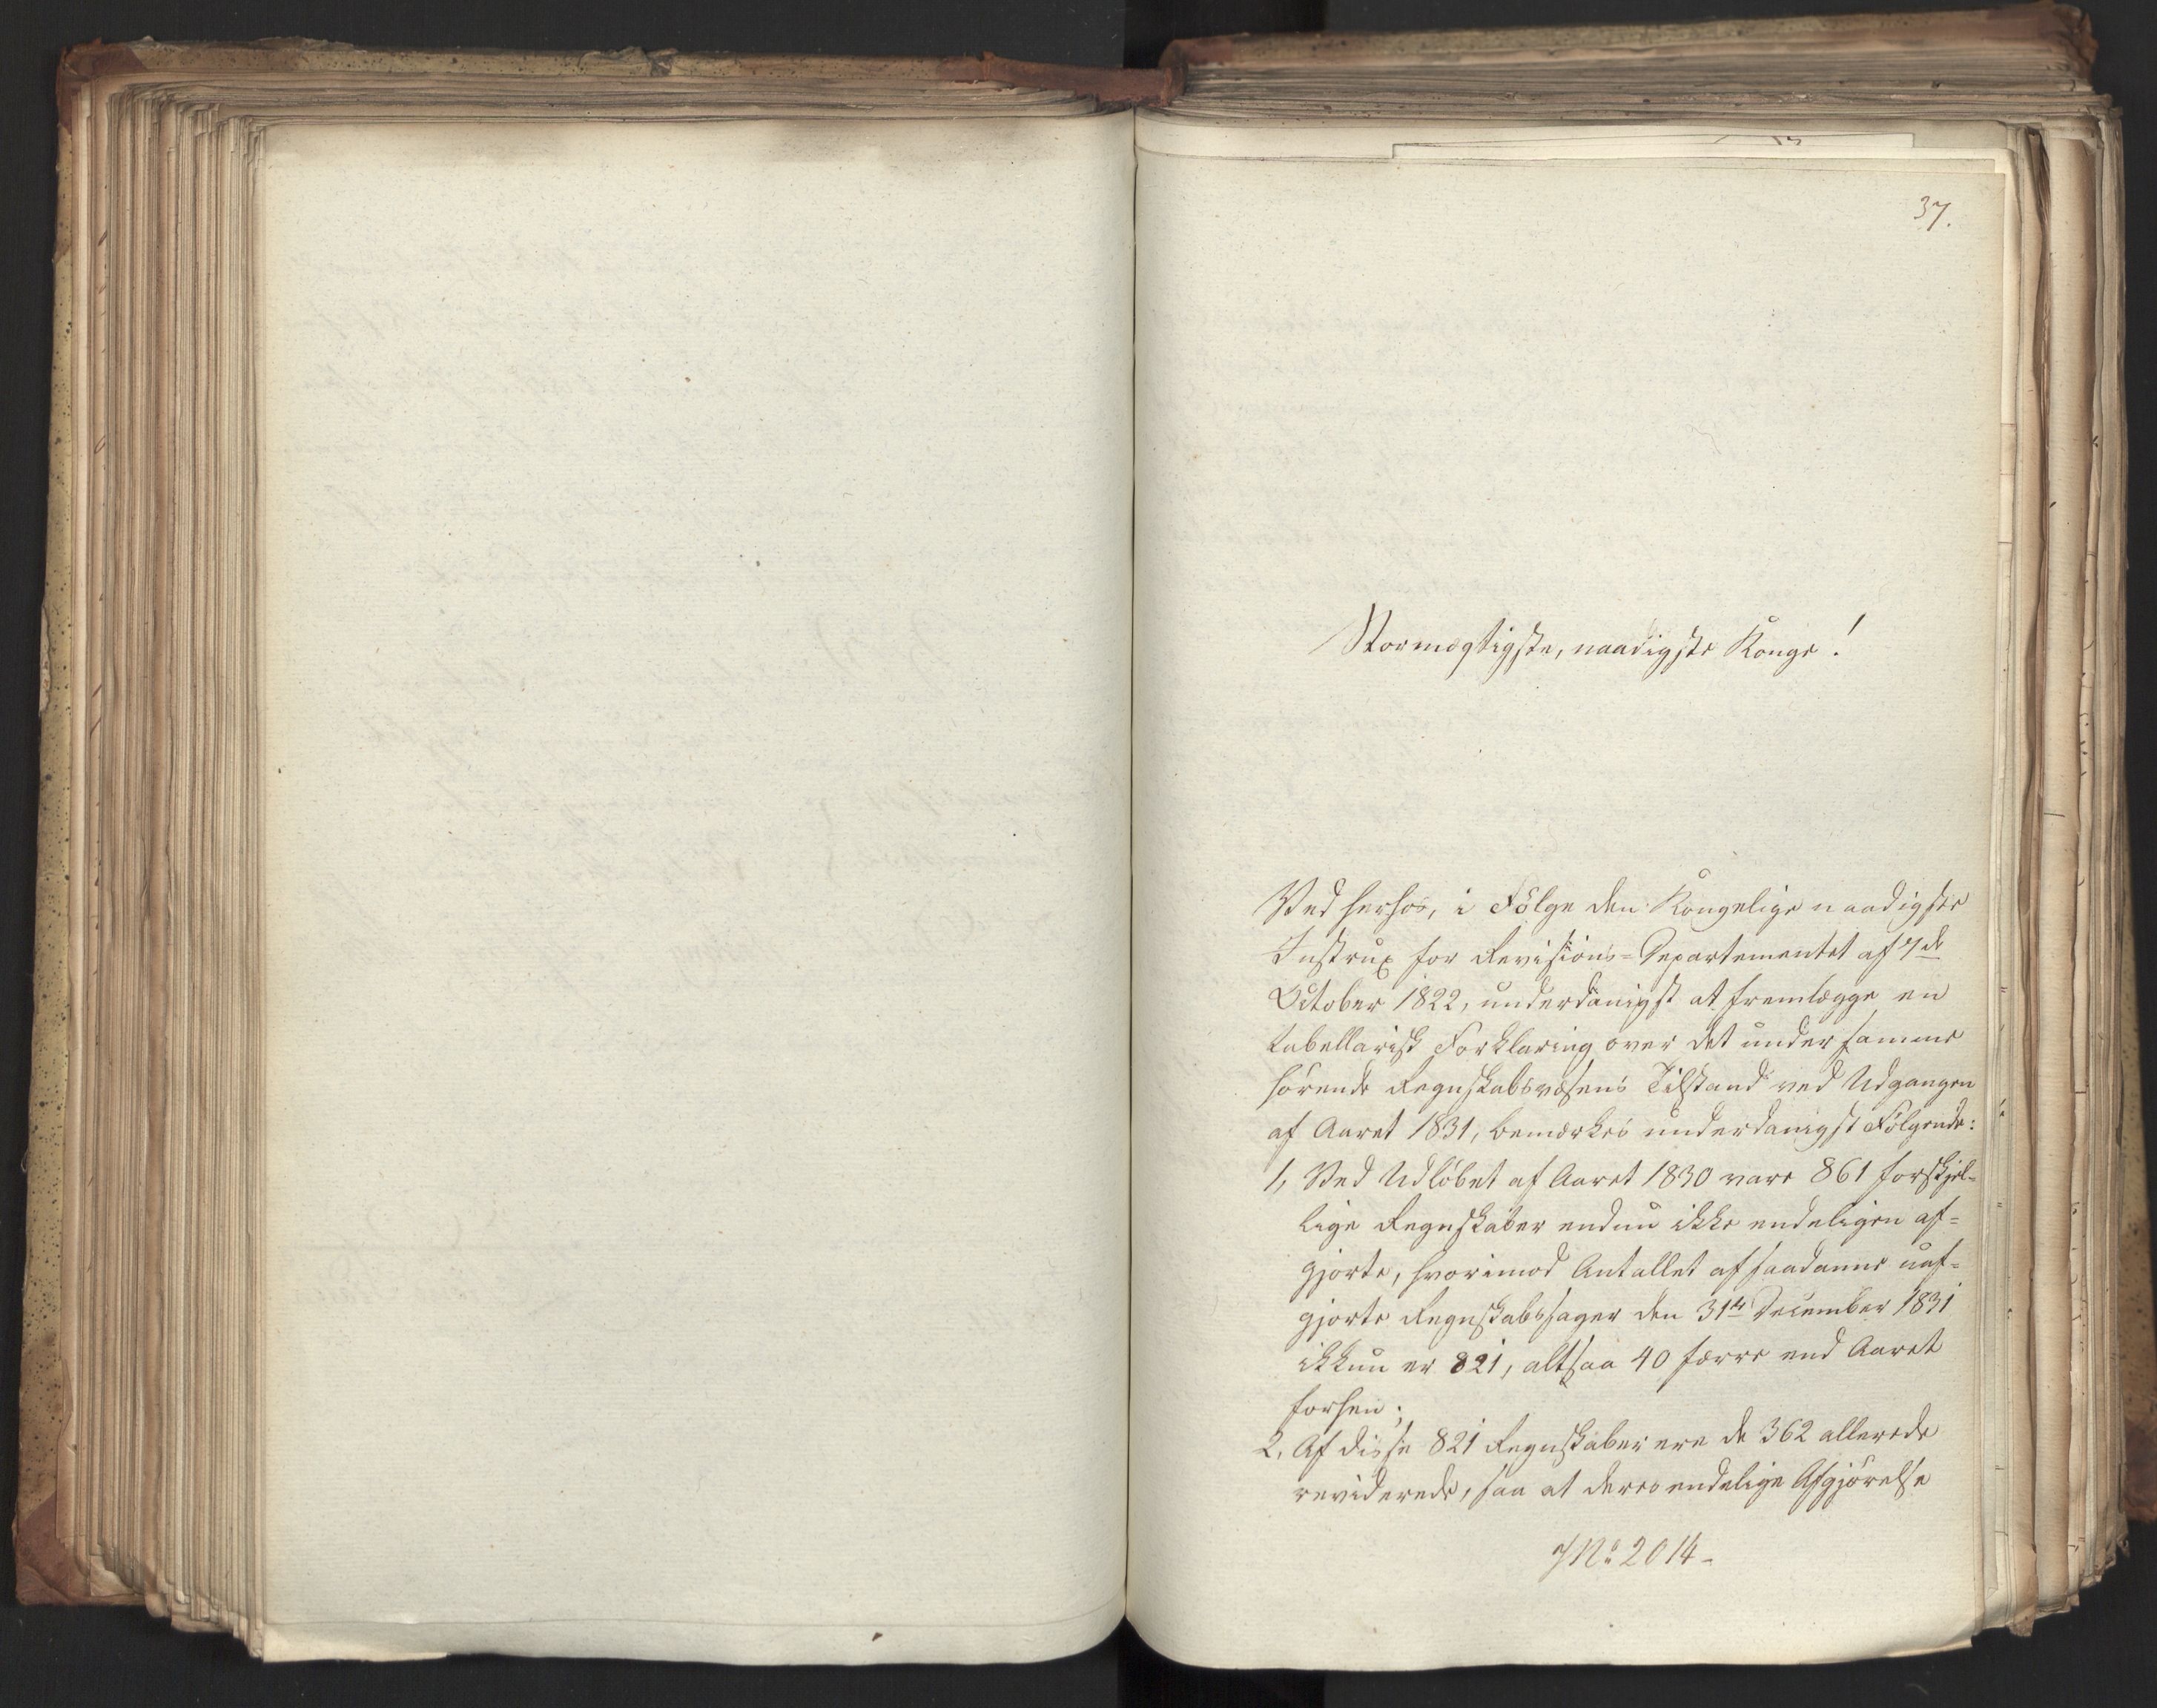 37.
Stormægtigste, naadigste Konge!
Ved herhos, i Følge den Kongelige naadigste
Instrux for Revisions-Departementet af 7de
October 1822, underdanigst at fremlægge en
tabellarisk Forklaring over det under samme
hørende Regnskabsvæsens Tilstand ved Udgangen
af Aaret 1831, bemærkes underdanigst Følgende:
1, Ved Udløbet af Aaret 1830 vare 861 forskjel-
lige Regnskaber endnu ikke endeligen af-
gjorte, hvorimod Antallet af saadanne uaf-
gjorte Regnskabssager den 31te December 1831
ikkun er 821, altsaa 40 færre end Aaret
forhen;
2, Af disse 821 Regnskaber ere de 362 allerede
reviderede, saa at deres endelige Afgjørelse
JNo 2014-